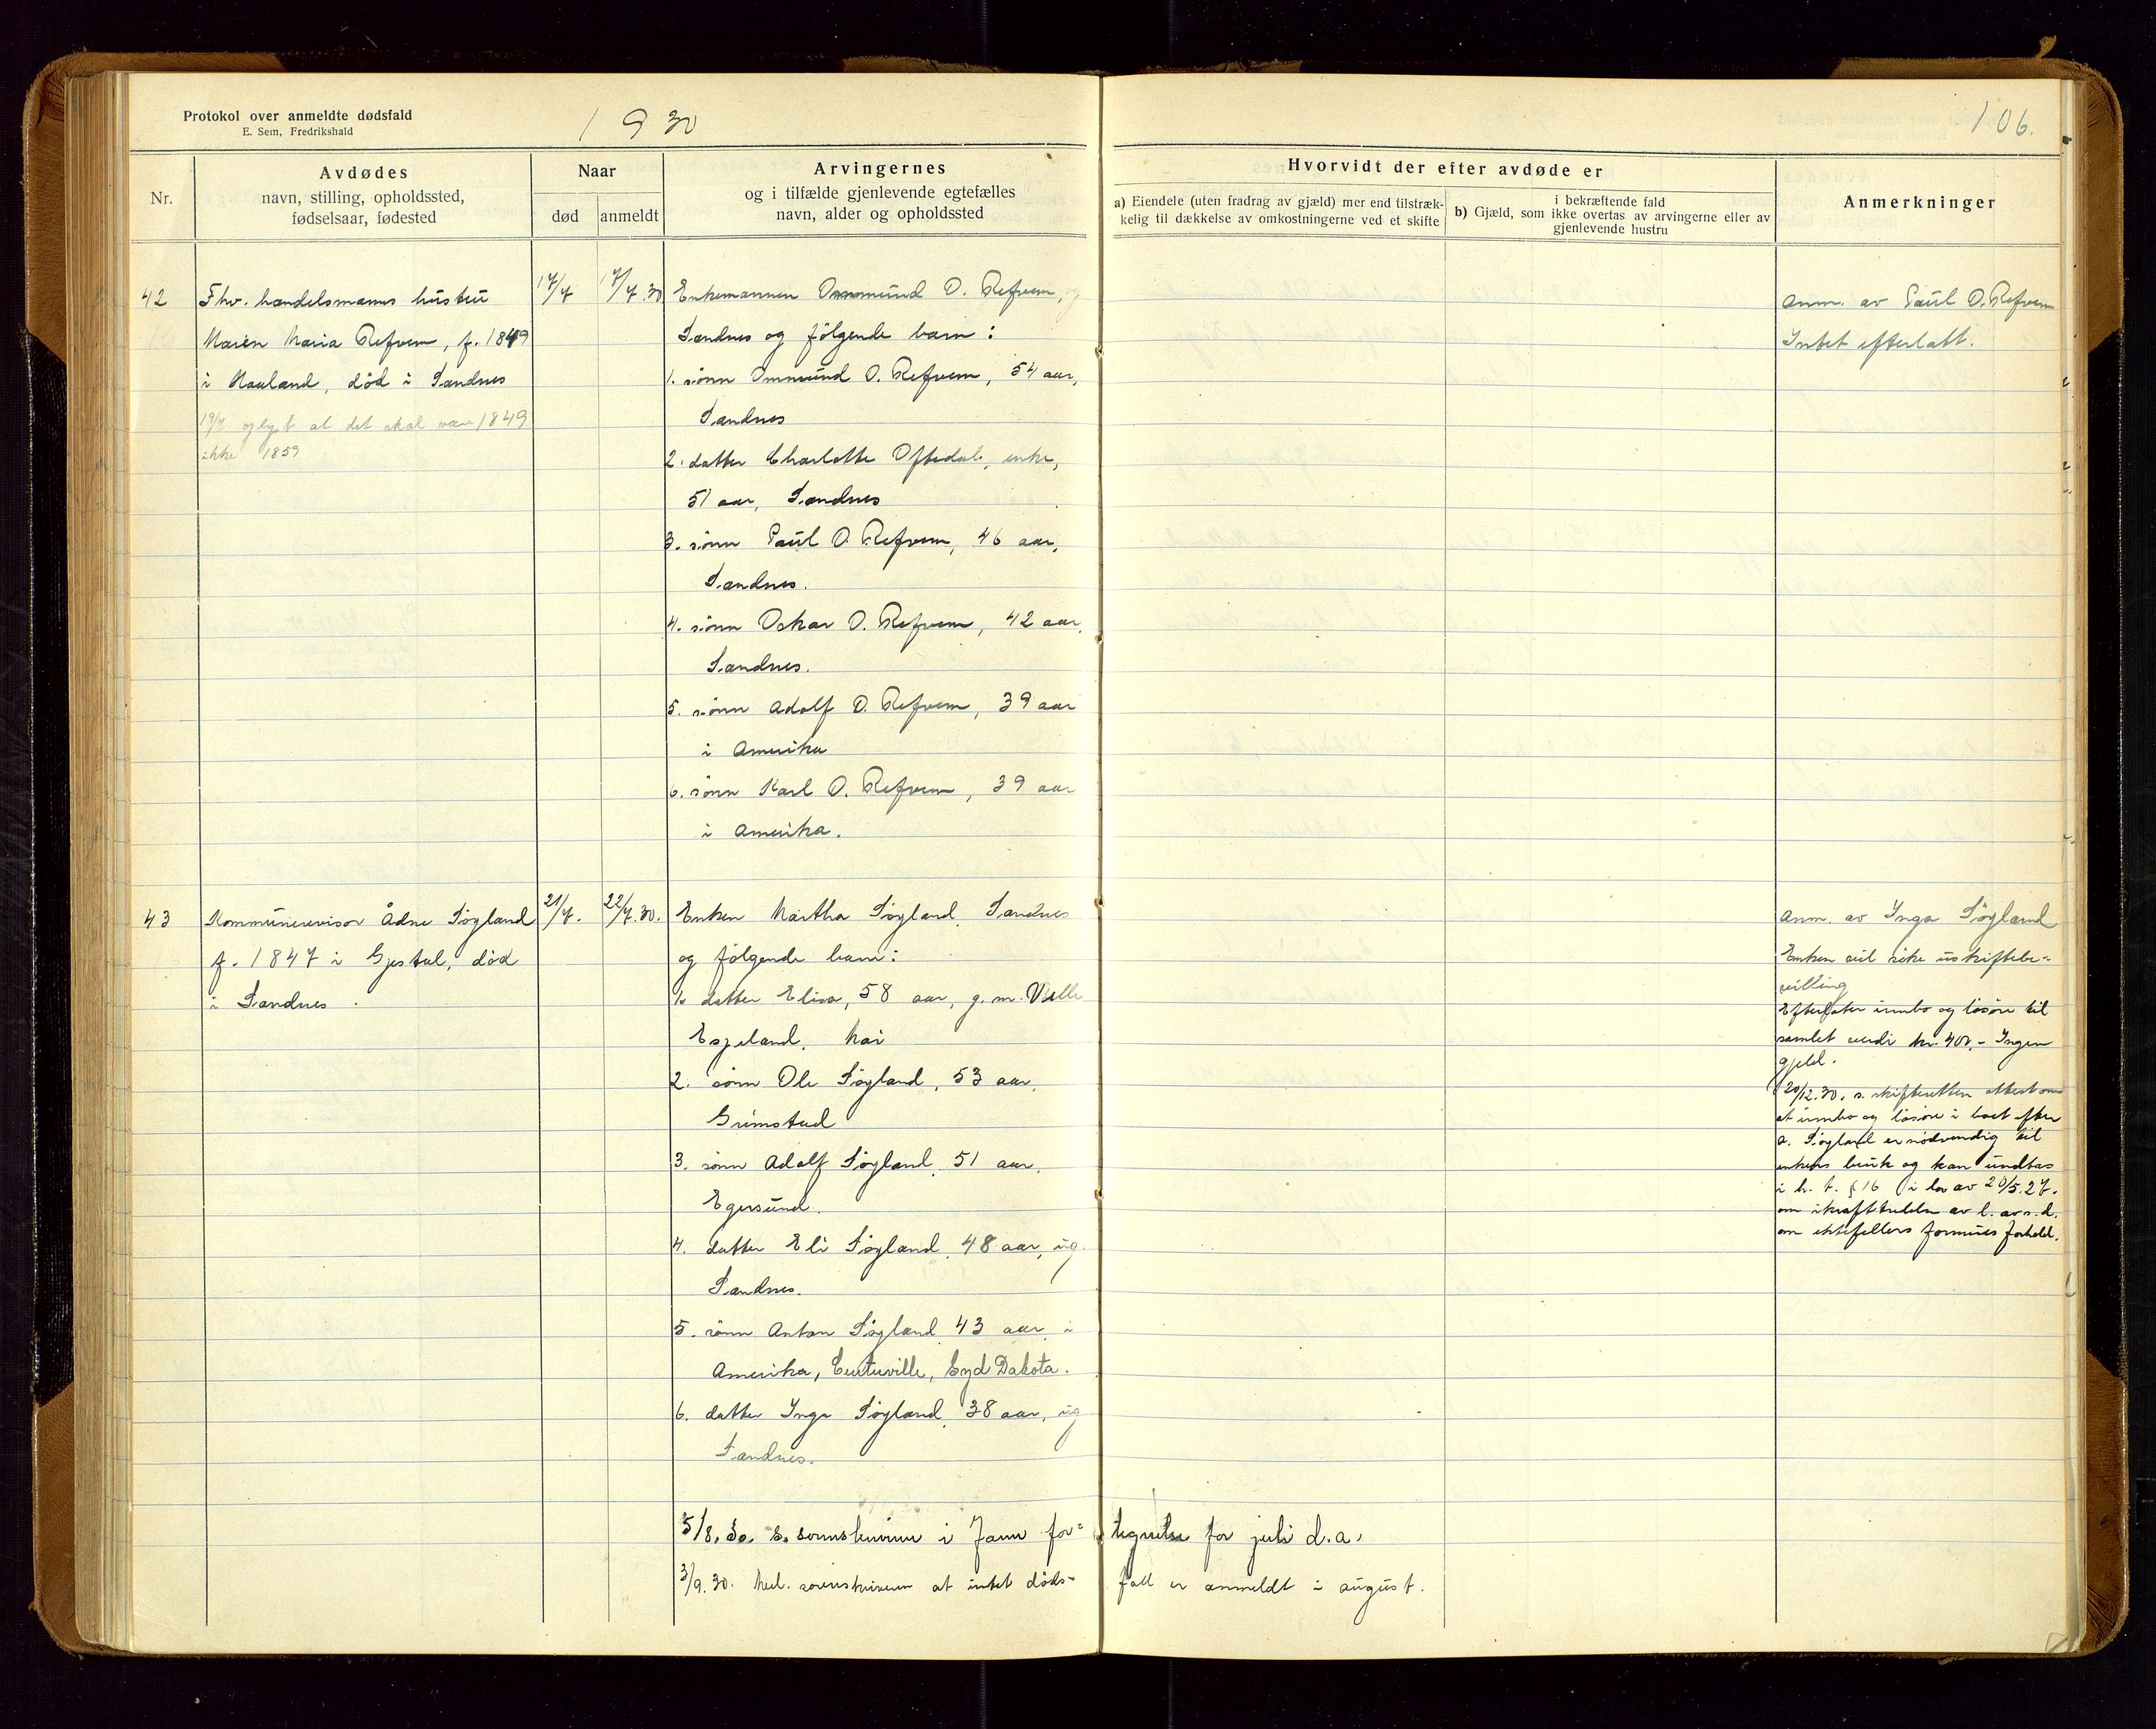 Protokol over anmeldte dødsfald
E. Sem, Fredrikshald
1930
106.
Nr.
Avdødes
navn, stilling, opholdssted,
fødselsaar, fødested
Naar
død
anmeldt
Arvingernes
og i tilfælde gjenlevende egtefælles
navn, alder og opholdssted
Hvorvidt der efter avdøde er
a) Eiendele (uten fradrag av gjæld) mer end tilstræk-
kelig til dækkelse av omkostningerne ved et skifte
i bekræftende fald
b) Gjæld, som ikke overtas av arvingerne eller av
gjenlevende hustru
Anmerkninger
42
Fhv. handelsmanns hustru
Maren Maria Refvem, f. 1849
i Hauland, død i Sandnes
19/7 oplyst at det skal være 1849
ikke 1859
17/7
17/7.30
Enkemannen Ommund O. Refvem,
Sandnes og følgende barn:
1. sønn Ommund O. Refvem, 54 aar,
Sandnes
2. datter Charlotte Oftedal, enke,
51 aar, Sandnes
3. sønn Paul O. Refvem, 46 aar,
Sandnes.
4. sønn Oskar O. Refvem, 42 aar,
Sandnes.
5. sønn Adolf O. Refvem, 39 aar
i Amerika
6. sønn Karl O. Refvem, 39 aar
i Amerika.
Anm. av Paul O. Refvem
Intet efterlatt.
43
Kommunerevisor Ådne Søyland
f. 1847 i Gjestal, død
i Sandnes.
21/7.
22/7.30.
Enken Martha Søyland, Sandnes
og følgende barn:
1. datter Elisa, 58 aar, g. m.
Espeland,
2. sønn Ole Søyland, 53 aar,
Grimstad
3. sønn Adolf Søyland, 51 aar,
Egersund.
4. datter Eli Søyland, 48 aar, ug.
Sandnes.
5. sønn Anton Søyland 43 aar, i
Amerika, Centerville, Syd Dakota.
6. datter Inga Søyland, 38 aar, ug
Sandnes.
Anm. av Inga Søyland
Enken vil søke uskiftebe-
villing
Efterlater innbo og løsøre til
samlet verdi kr. 400,- Ingen
gjeld.
20/12.30. s. skifteretten attest om
at innbo og løsøre i boet efter
a. Søyland er nødvendig til
enkens bruk og kan undtas
i h. t. § 16 i lov av 20/5.27.
om ikrafttreden av l. av s. d.
om ektefellers formues forhold.
5/8.30. S. sorenskriveren i Jæren for- tegnelse for juli d.a.
3/9.30. Med. sorenskriveren at intet døds- fall er anmeldt i august.